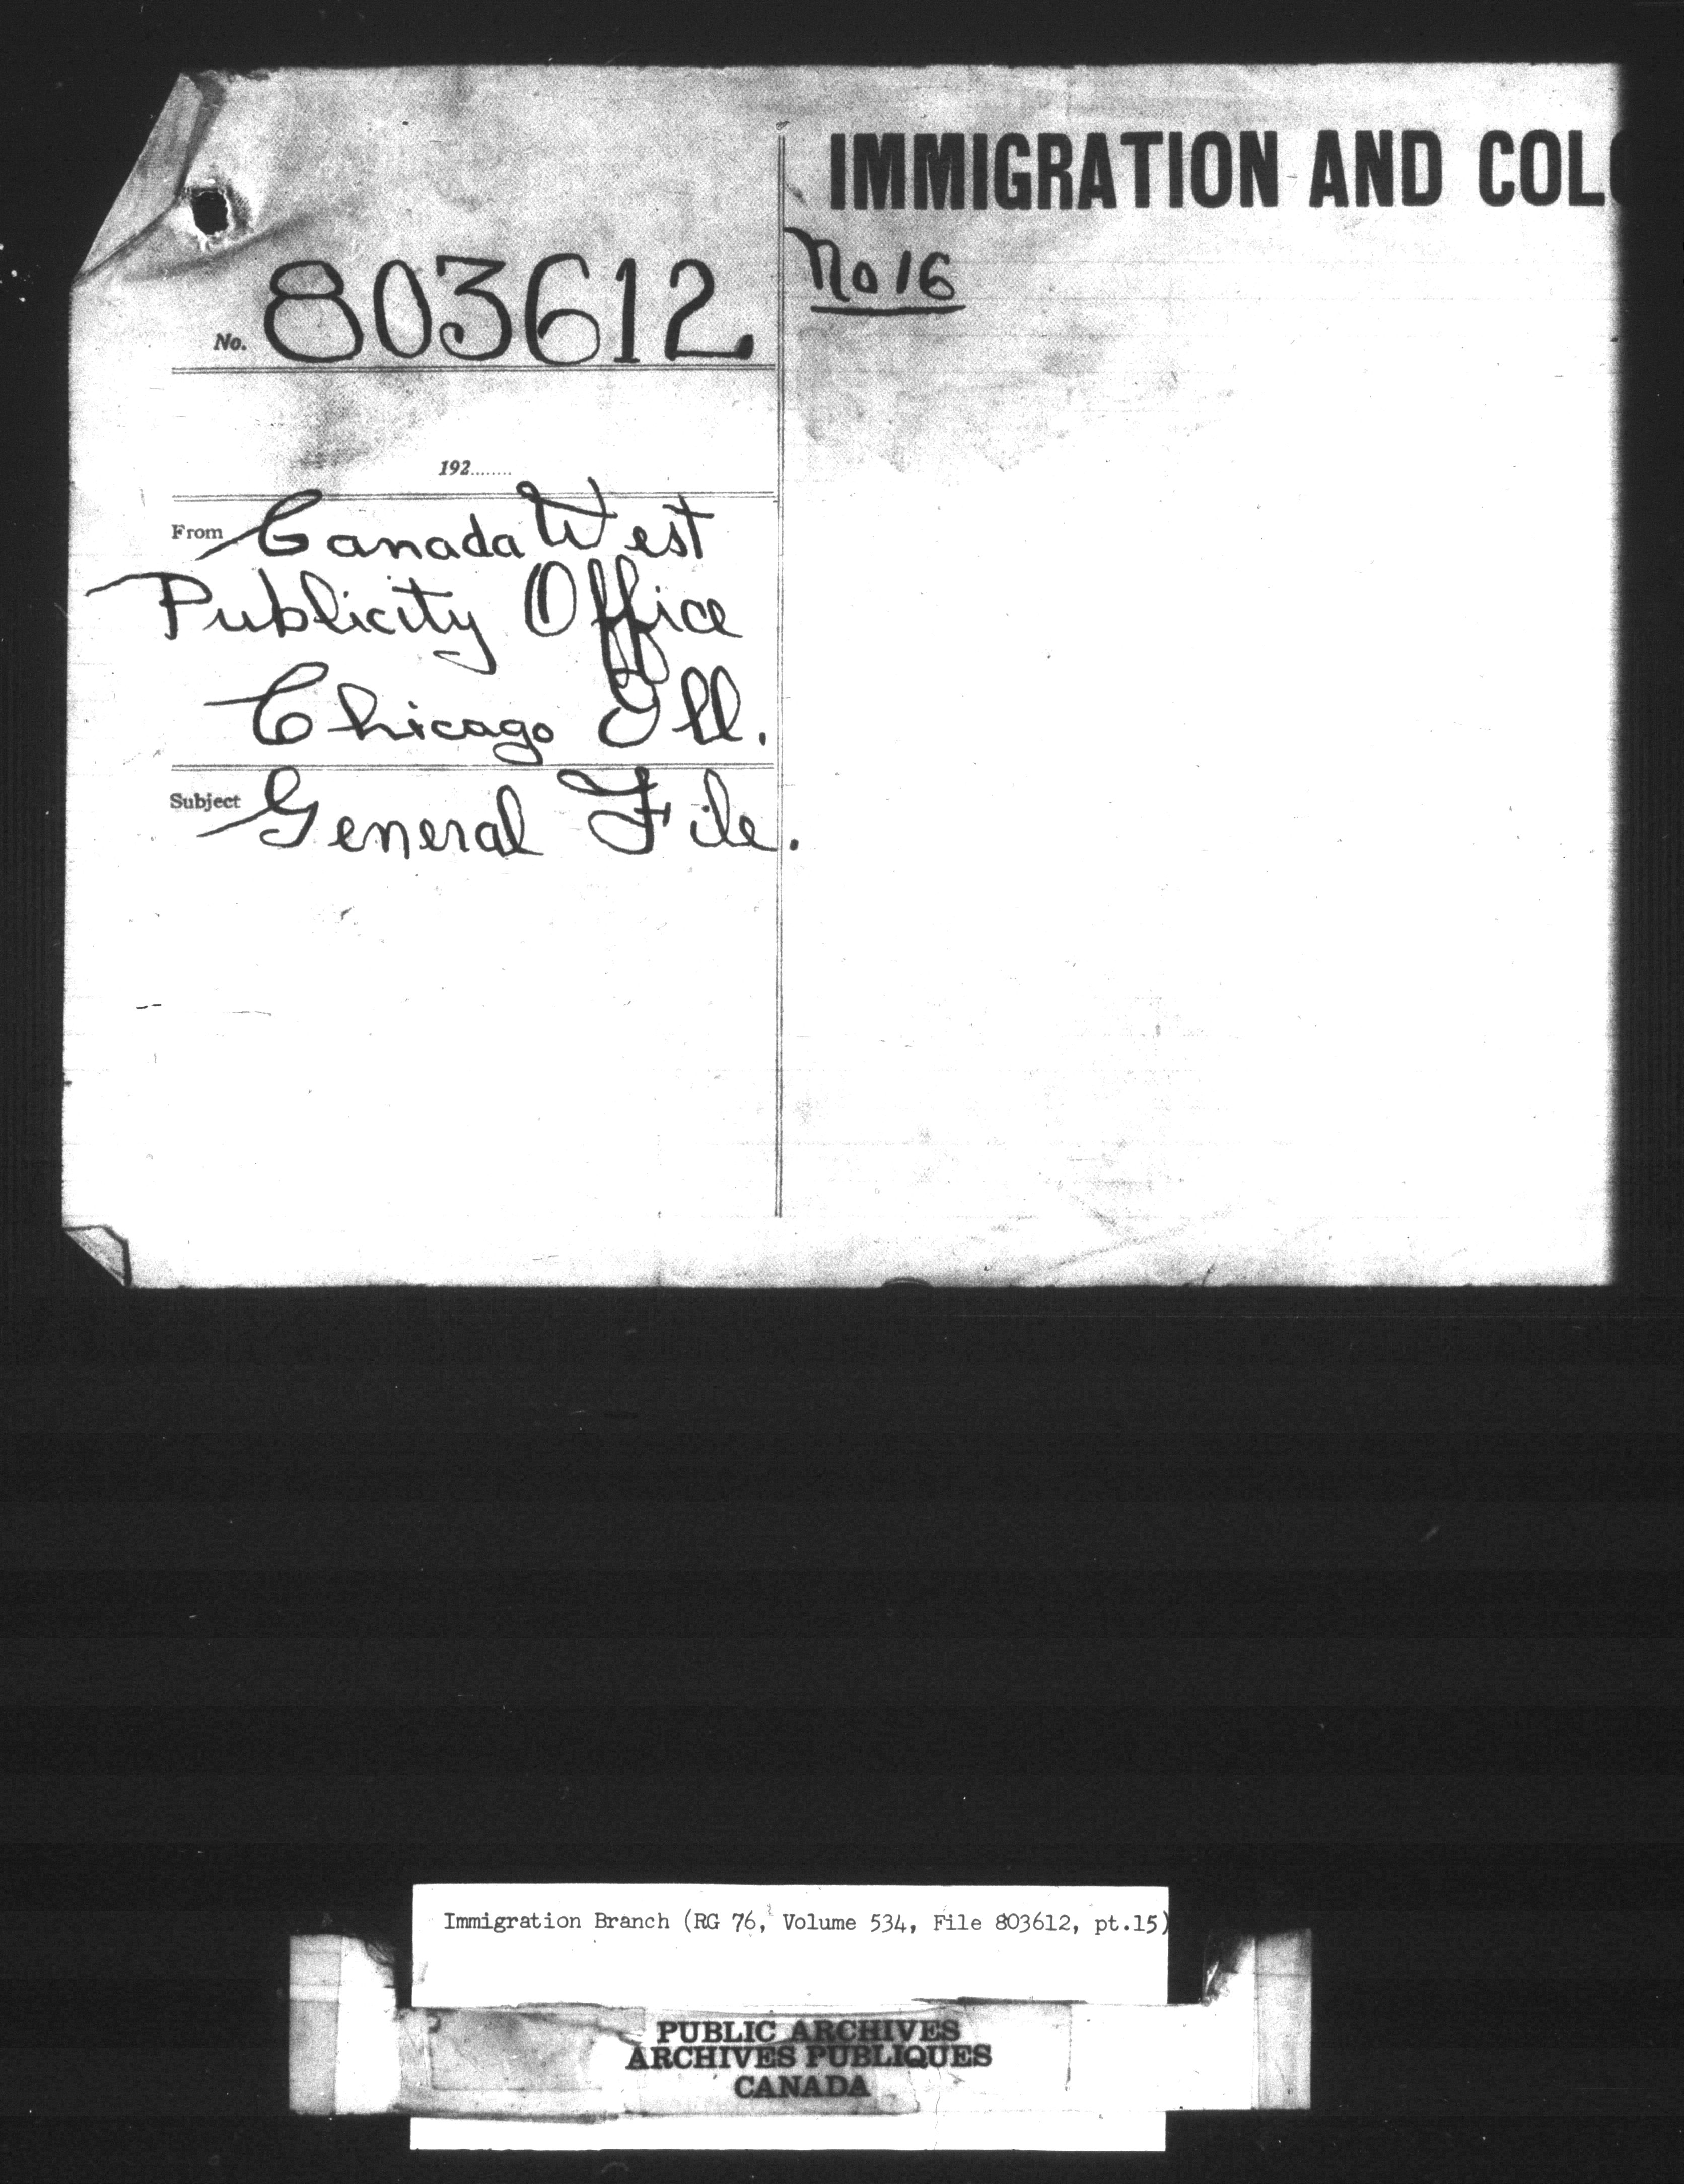 IMMIGRATION AND COL
No 16
No. 803612
192........
From Canada West
Publicity Office
Chicago Ill.
Subject General File.
Immigration Branch (RG 76, Volume 534, File 803612, pt.15)
PUBLIC ARCHIVES
ARCHIVES PUBLIQUES
CANADA